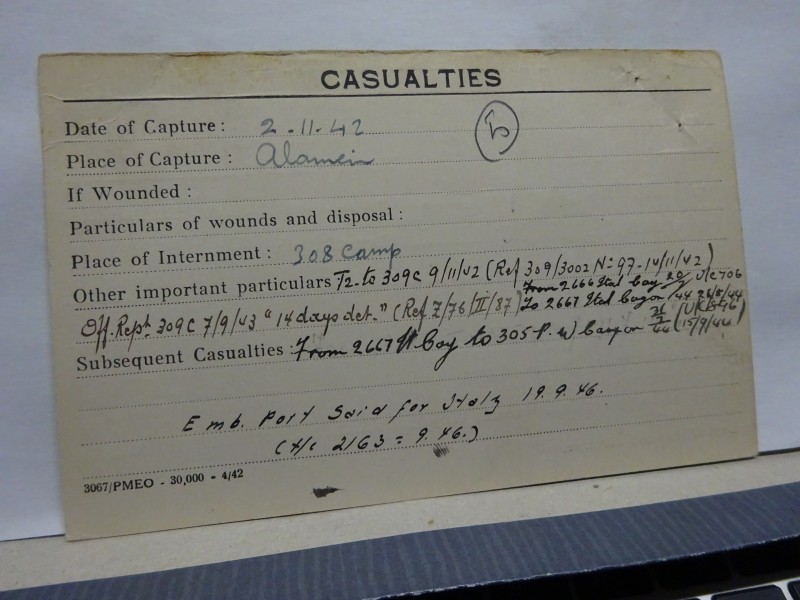 CASUALTIES
Date of Capture : 2-11-42
Place of Capture : Alamein
If Wounded :
Particulars of wounds and disposal :
Place of Internment : 308 Camp
Other important particulars T2. to 309C 9/11/42 (Ref 309/3002 No 97-14/11/42)
From 2666 Ital Coy 20 U/C 706
Off. Rept. 309C 7/9/43 "14 days det." (Ref. Z/76/II/87) To 2667 Ital Coy on /44 26/8/44
Subsequent Casualties : From 2667 It Coy to 305 P. W Camp on (15/9/46)
Emb. Port Said for Italy 19.9.46.
2163 = 9.46.)
3067/PMEO - 30,000 - 4/42